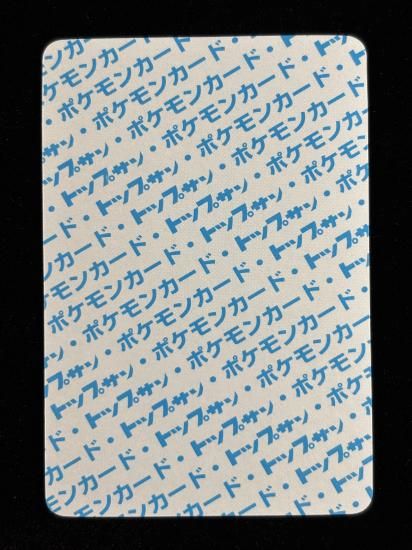 モンカード・
・ポケモンカード・
ード・ポケモンカード・
・トップサン・ポケモンカード・
ド・トップサン・ポケモンカード
カード・トップサン・ポケモン
ンカード・トップサン・ポケ
モンカード・トップサン・
ケモンカード・トップサン・
ポケモンカード・トップサン
・ポケモンカード・トップ
・ポケモンカード・
トップサン・ポケモンカード・
・トップサン・ポケモンカード
ード・トップサン・ポケモン
カード・トップサン・
ンカード・トップサン・
モンカード・トップサン